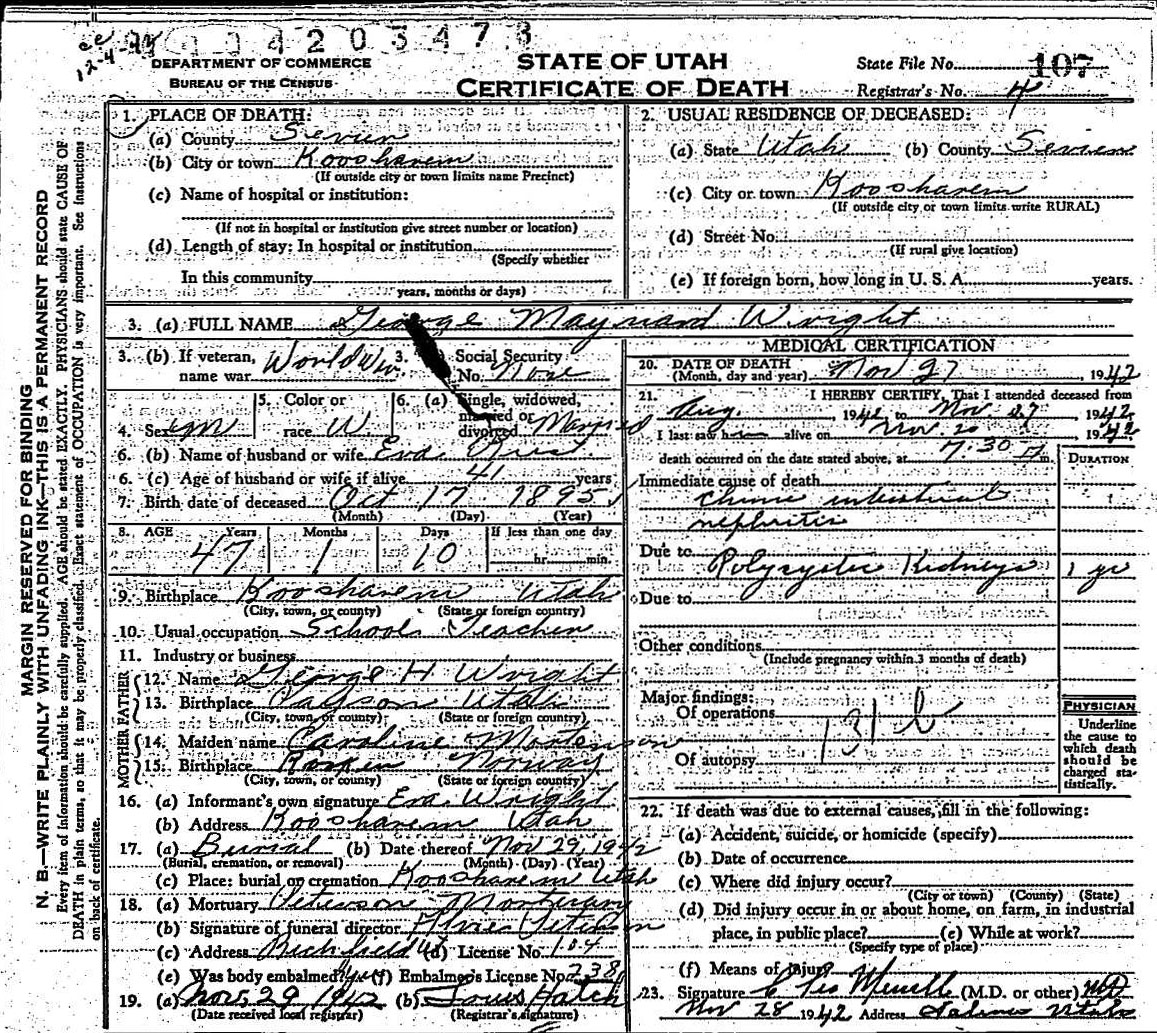 1 1 4 2 0 3 4 7 3
12-4
DEPARTMENT OF COMMERCE
BUREAU OF THE CENSUS
STATE OF UTAH
CERTIFICATE OF DEATH
State File No. 107
Registrar's No. 4
MARGIN RESERVED FOR BINDING
N. B.—WRITE PLAINLY WITH UNFADING INK—THIS IS A PERMANENT RECORD
Every item of information should be carefully supplied. AGE should be stated EXACTLY. PHYSICIANS should state CAUSE OF
DEATH in plain terms, so that it may be properly classified. Exact statement of OCCUPATION is very important. See instructions
on back of certificate.
1. PLACE OF DEATH:
(a) County Sevier
(b) City or town Koosharem
(If outside city or town limits name Precinct)
(c) Name of hospital or institution:
(If not in hospital or institution give street number or location)
(d) Length of stay: In hospital or institution
(Specify whether
In this community
years, months or days)
2. USUAL RESIDENCE OF DECEASED:
(a) State Utah (b) County Sevier
(c) City or town Koosharem
(If outside city or town limits write RURAL)
(d) Street No.
(If rural give location)
(e) If foreign born, how long in U. S. A. years.
3. (a) FULL NAME George Maynard Wright
3. (b) If veteran, name war World War 3. Social Security No. None
4. Sex m 5. Color or race W 6. (a) Single, widowed, married or divorced Married
6. (b) Name of husband or wife Eva
6. (c) Age of husband or wife if alive 41 years
7. Birth date of deceased Oct 17 1895
(Month) (Day) (Year)
8. AGE Years Months Days If less than one day
47 1 10 hr. min.
9. Birthplace Koosharem Utah
(City, town, or county) (State or foreign country)
10. Usual occupation School Teacher
11. Industry or business
FATHER
12. Name George H Wright
13. Birthplace Payson Utah
(City, town, or county) (State or foreign country)
MOTHER
14. Maiden name Caroline Mortenson
15. Birthplace Norway
(City, town, or county) (State or foreign country)
16. (a) Informant's own signature Eva Wright
(b) Address Koosharem Utah
17. (a) Burial (b) Date thereof Nov 29, 1942
(Burial, cremation, or removal) (Month) (Day) (Year)
(c) Place: burial or cremation Koosharem Utah
18. (a) Mortuary Peterson Mortuary
(b) Signature of funeral director
(c) Address Richfield Ut (d) License No. 104
(e) Was body embalmed? Yes (f) Embalmer's License No. 238
19. (a) Nov. 29 1942 (b) Louis Hatch
(Date received local registrar) (Registrar's signature)
MEDICAL CERTIFICATION
20. DATE OF DEATH
(Month, day and year) Nov 27 1942
21. I HEREBY CERTIFY, That I attended deceased from
Aug. 1942 to Nov. 27 1942
I last saw h alive on Nov. 20 1942
death occurred on the date stated above, at 7:30 P m.
DURATION
Immediate cause of death
chronic interstitial
nephritis
Due to Polycystic Kidneys 1 yr
Due to
Other conditions
(Include pregnancy within 3 months of death)
Major findings:
Of operations
131 b
Of autopsy
PHYSICIAN
Underline
the cause to
which death
should be
charged sta-
tistically.
22. If death was due to external causes, fill in the following:
(a) Accident, suicide, or homicide (specify)
(b) Date of occurrence
(c) Where did injury occur?
(City or town) (County) (State)
(d) Did injury occur in or about home, on farm, in industrial
place, in public place? (e) While at work?
(Specify type of place)
(f) Means of injury
23. Signature (M.D. or other) MD
Nov 28 1942 Address Salina Utah